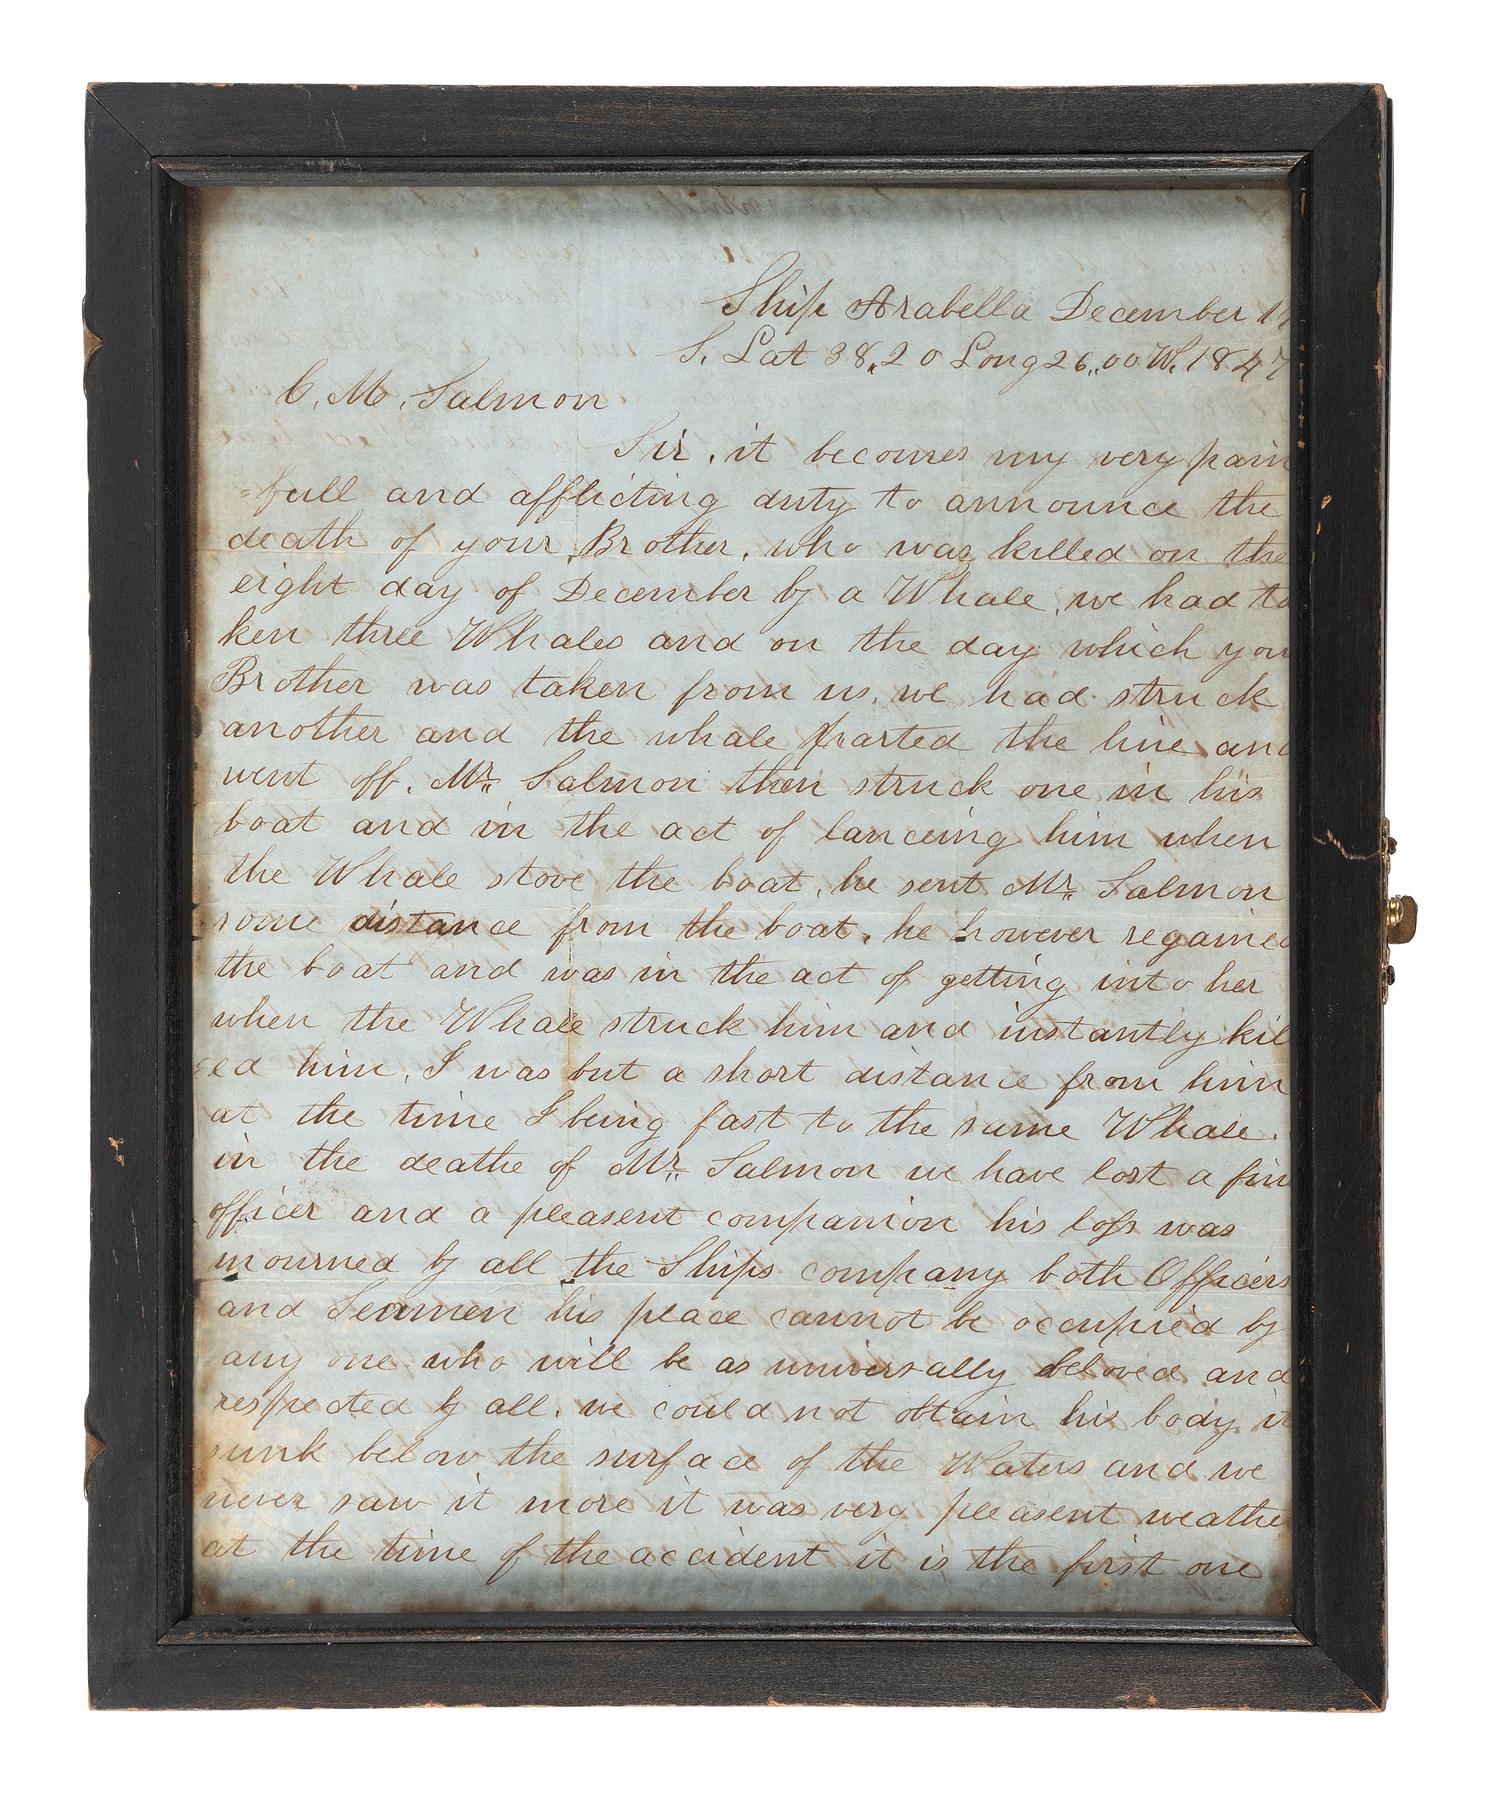 Ship Arabella December 17
S. Lat 38,,20 Long 26,,00 W. 1847
C. M. Salmon
Sir, it becomes my very pain
=full and afflicting duty to announce the
death of your Brother, who was killed on the
eight day of December by a Whale, we had ta
ken three Whales and on the day which you
Brother was taken from us, we had struck
another and the whale parted the line and
went off, Mr. Salmon then struck one in his
boat and in the act of lanceing him when
the Whale stove the boat, he sent Mr. Salmon
some distance from the boat, he however regained
the boat and was in the act of getting into her
when the Whale struck him and instantly kil
=ed him, I was but a short distance from him
at the time I being fast to the same Whale.
in the deathe of Mr. Salmon we have lost a fin
officer and a pleasent companion his loss was
mourned by all the Ships company both Officers
and Seamen his place cannot be occupied by
any one who will be as universally beloved and
respected by all, we could not obtain his body it
sunk below the surface of the Waters and we
never saw it more it was very pleasent weathe
at the time of the accident it is the first one